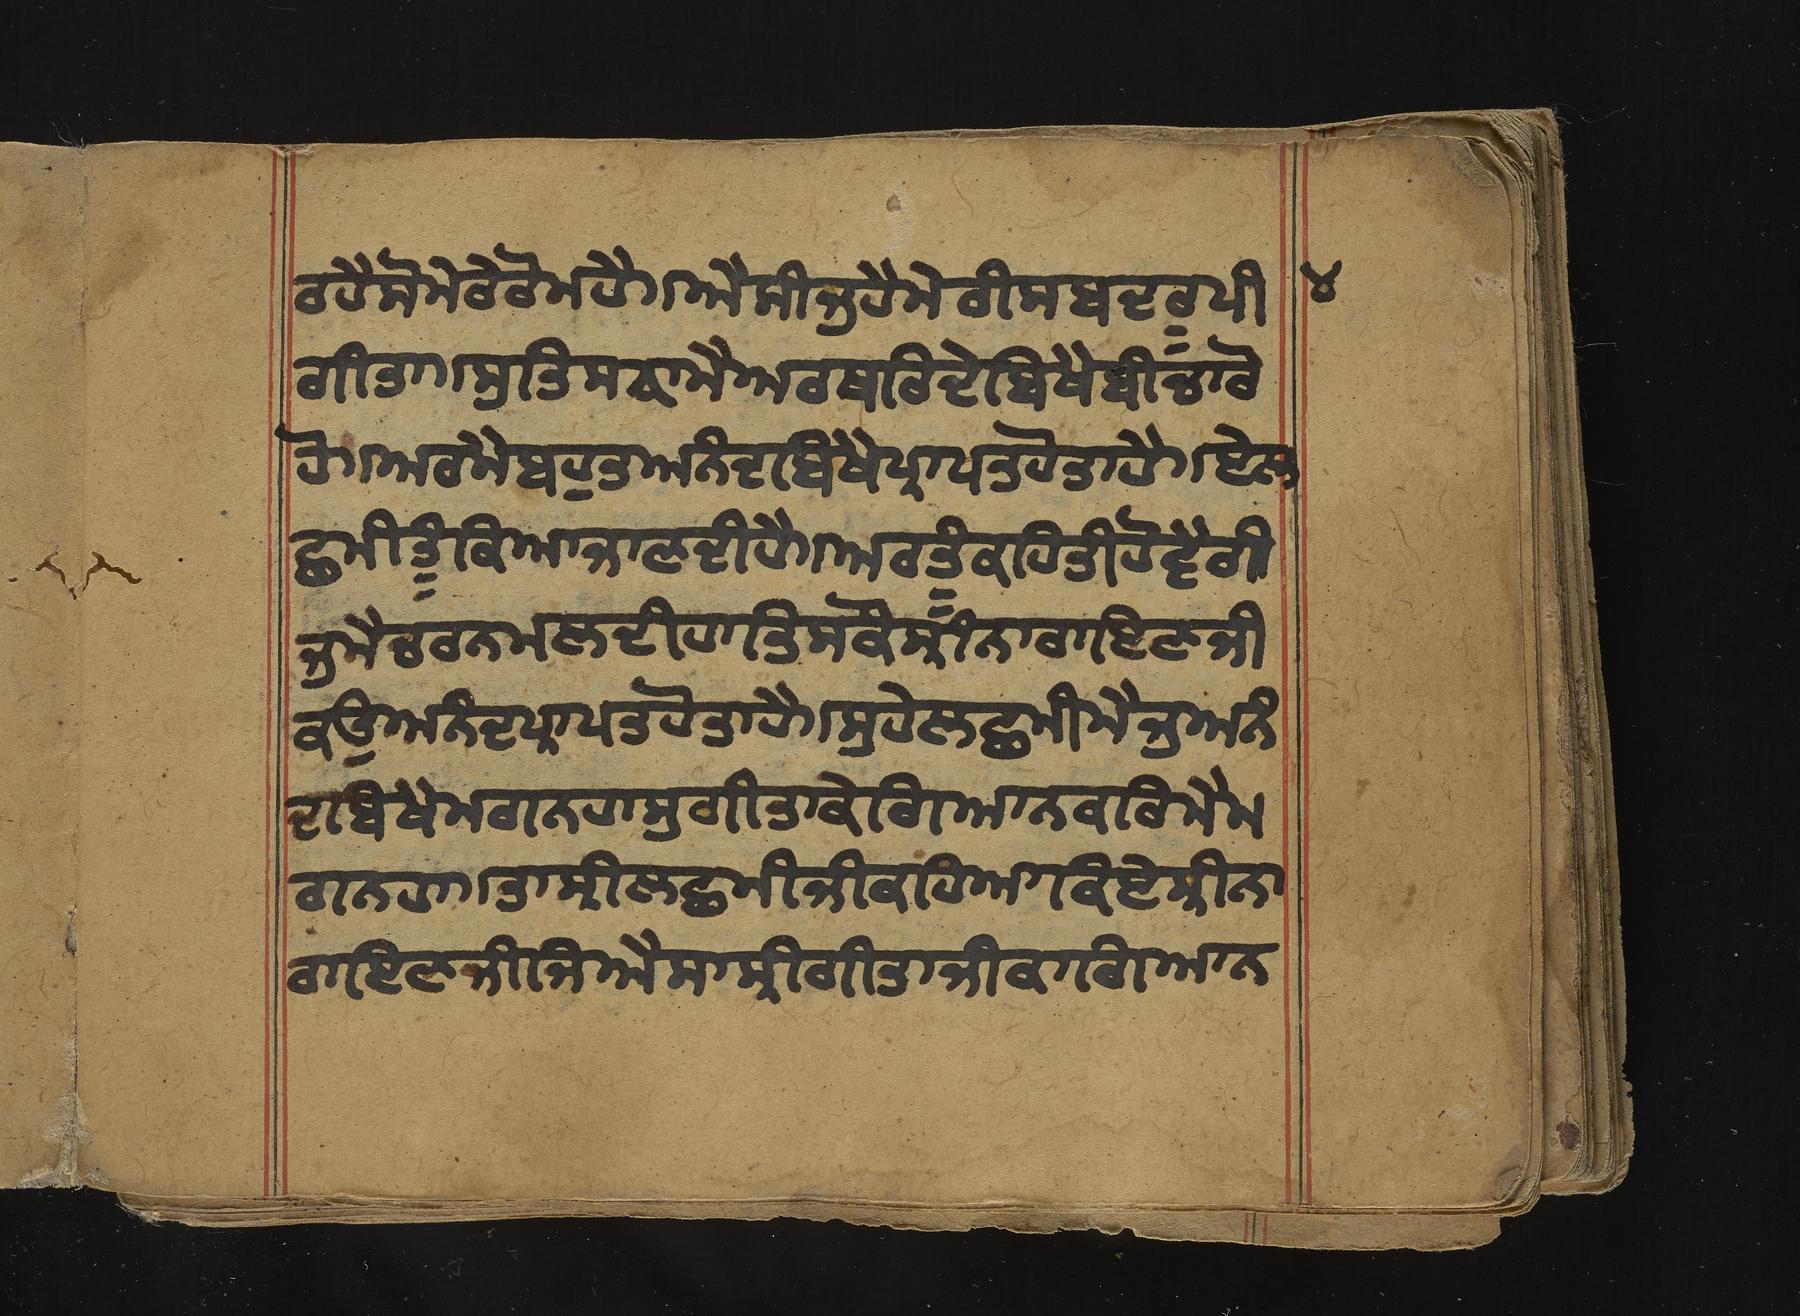 ਰਹੈਸੋਮੇਰੇਰੋਮਹੈ।ਐਸੀਜੁਹੈਮੇਰੀਸਬਦਰੂਪੀ ੪
ਗੀਤਾ।ਸੁਤਿਸਨਾਮੈਅਰਥਰਿਦੇਬਿਖੈਬੀਚਾਰੋ
ਹੋ।ਅਰਮੈਬਹੁਤਅਨੰਦਬਿਖੇਪ੍ਰਾਪਤਹੋਤਾਹੈ।ਏਲ
ਛਮੀਤੂੰਕਿਆਜਾਣਦੀਹੈ।ਅਰਤੂੰਕਹਿਤੀਹੋਵੈਗੀ
ਜੁਮੈਚਰਨਮਲਦੀਹਾਤਿਸਕੌਸ੍ਰੀਨਾਰਾਇਣਜੀ
ਕਉਅਨੰਦਪ੍ਰਾਪਤਹੋਤਾਹੈ।ਸੁਹੇਲਛਮੀਮੈਜੁਅਨੰ
ਦਬਿਖੇਮਗਨਹਾਸੁਗੀਤਾਕੇਗਿਆਨਕਰਿਮੈਮ
ਗਨਹਾ।ਤਾਸ੍ਰੀਲਛਮੀਜੀਕਹਿਆਕਿਏਸ੍ਰੀਨਾ
ਰਾਇਣਜੀਜਿਐਸਾਸ੍ਰੀਗੀਤਾਜੀਕਾਗਿਆਨ